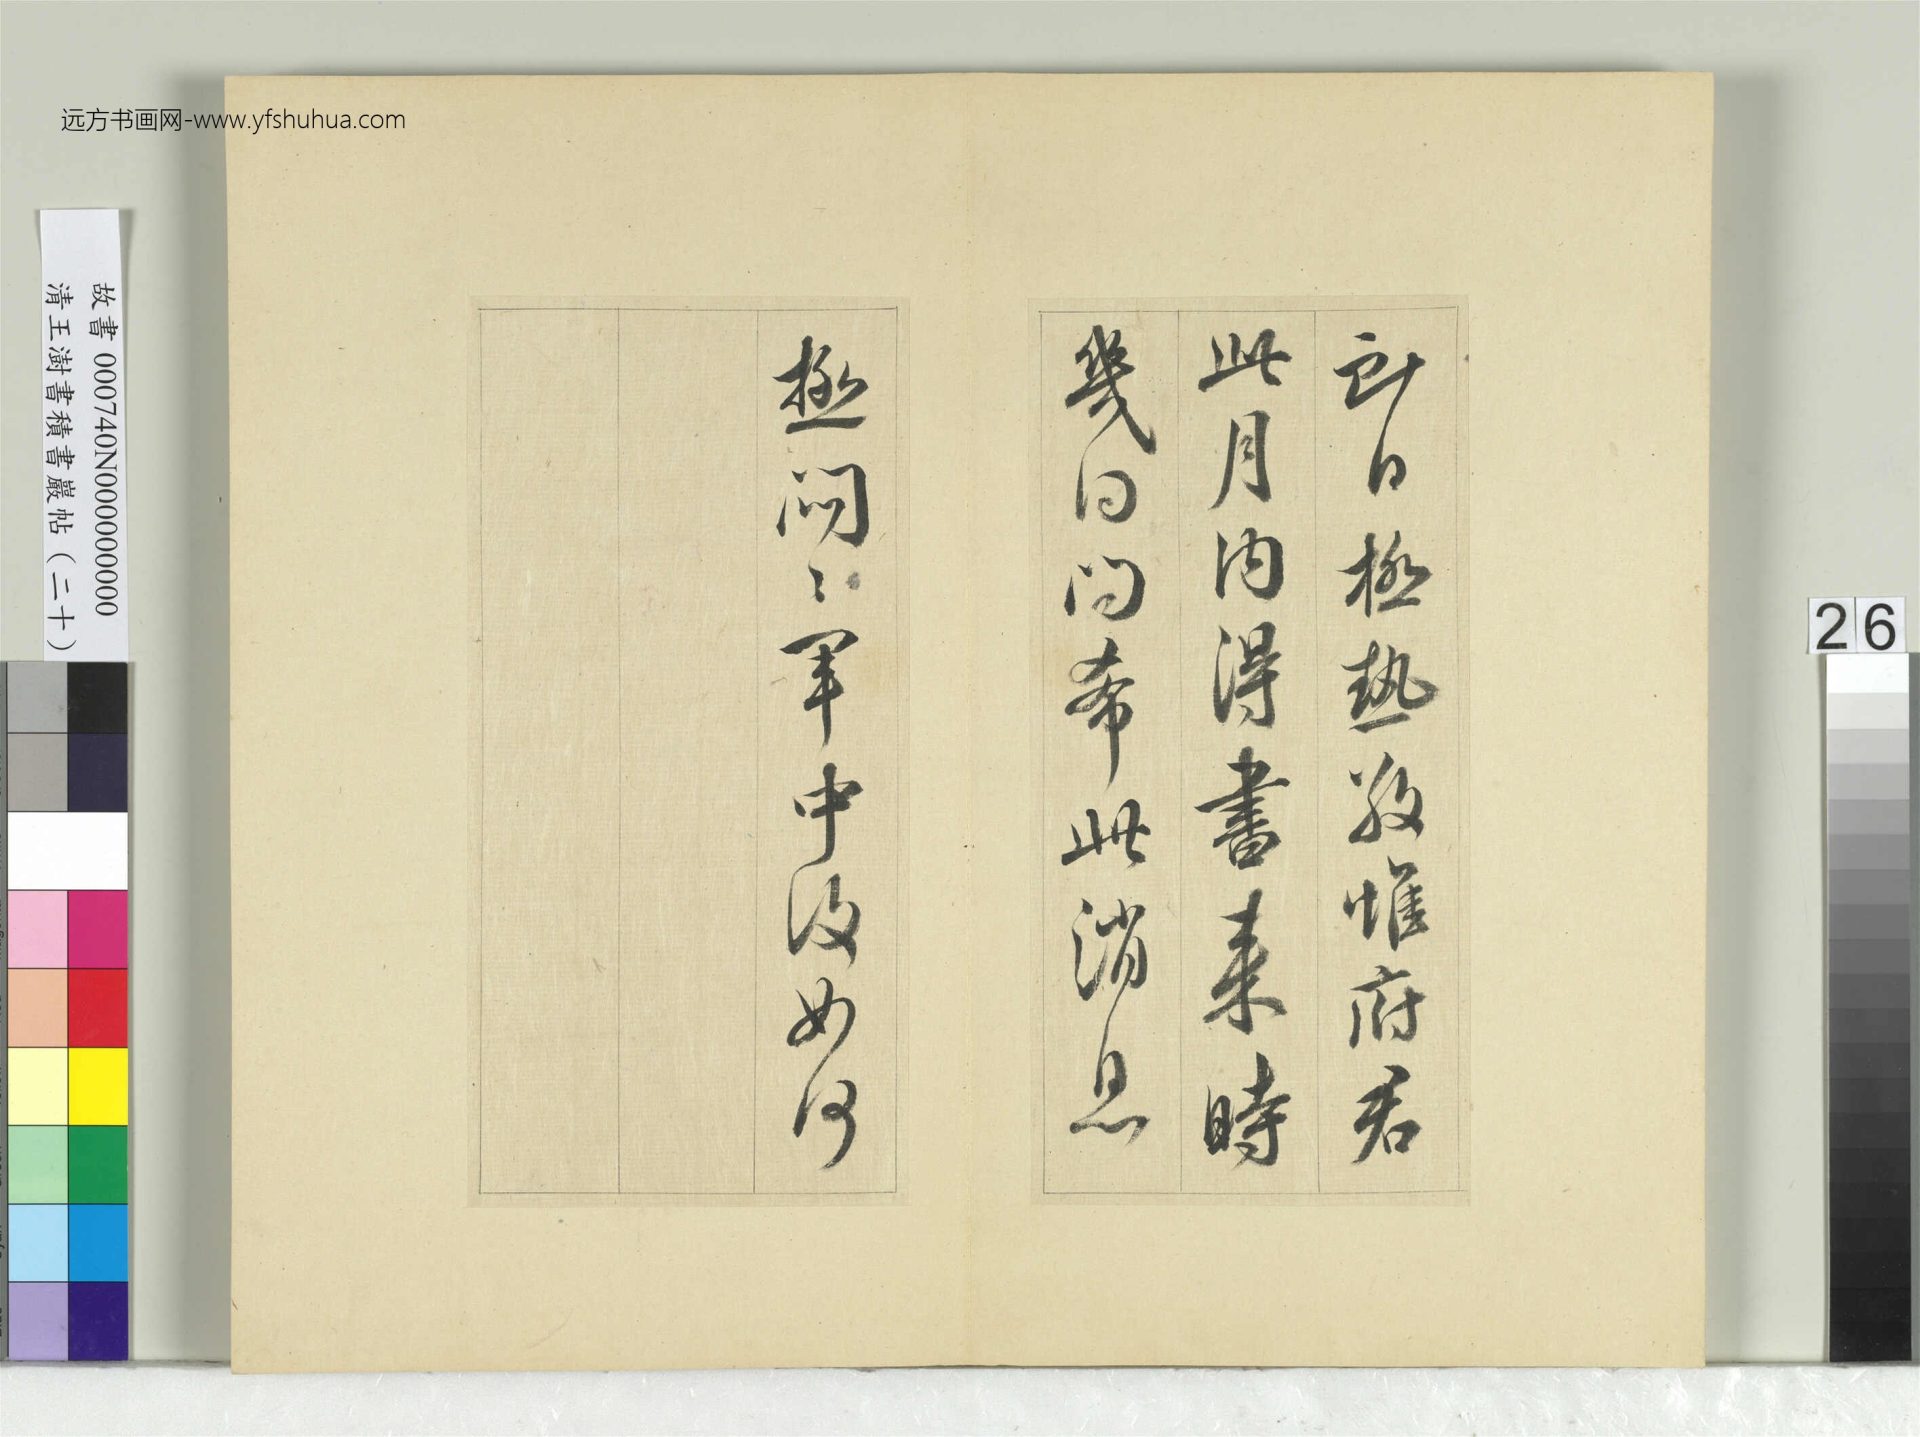 远方书画网-www.yfshuhua.com
故書 000740N000000000
清王澍書積書巖帖（二十）
26
日極熱敬惟府君
此月內得書來時
幾日問希此消息
極悶〻軍中復如何